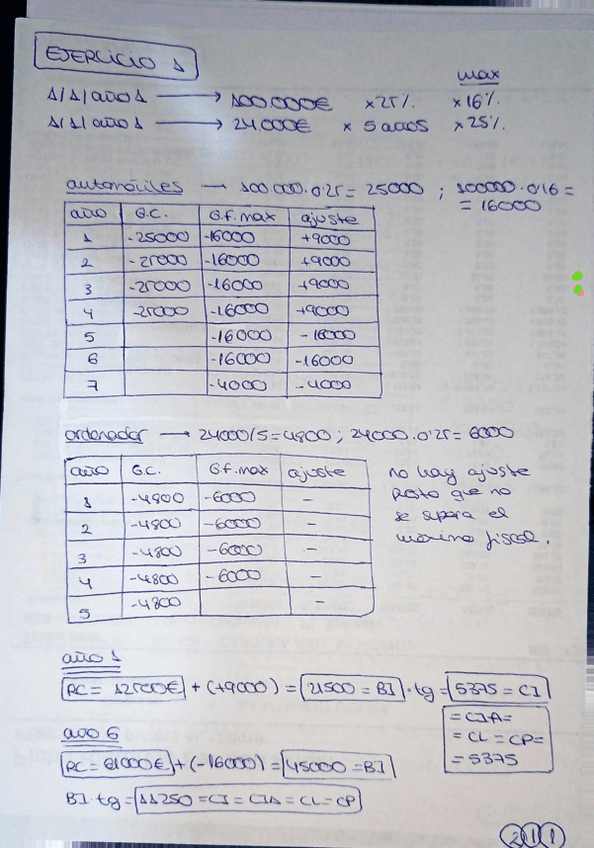 EJERCICIO 1
max
1/1/año 1 → 100.000€ x25% x16%
1/1/año 1 → 24.000€ x 5 años x25%
automóviles → 100.000·0'25= 25000 ; 100000·0'16=
= 16000
año G.C. G.f.max ajuste
1 -25000 -16000 +9000
2 -25000 -16000 +9000
3 -25000 -16000 +9000
4 -25000 -16000 +9000
5 -16000 -16000
6 -16000 -16000
7 -4000 -4000
ordenador → 24000/5=4800 ; 24000·0'25= 6000
año G.C. G.f.max ajuste
1 -4800 -6000 -
2 -4800 -6000 -
3 -4800 -6000 -
4 -4800 -6000 -
5 -4800 -
no hay ajuste
puesto que no
se supera el
máximo fiscal.
año 1
RC= 12500€ + (+9000) = 21500 = BI · tg = 5375 = CI
= CIA=
= CL = CP=
= 5375
año 6
RC= 61000€ + (-16000) = 45000 = BI
BI·tg = 11250 = CI = CIA = CL = CP
211